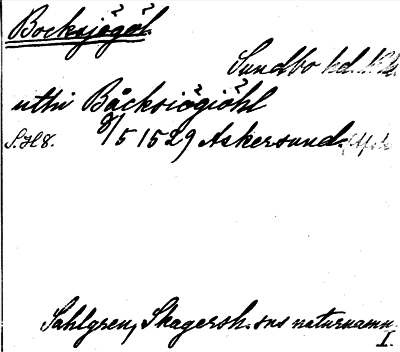 Bocksjögöl
Sundbo hd.
uthi Båcksiögiöhl
S.H8. 8/5 1529 Askersund.
Sahlgren, Skagersh. sns naturnamn
I.